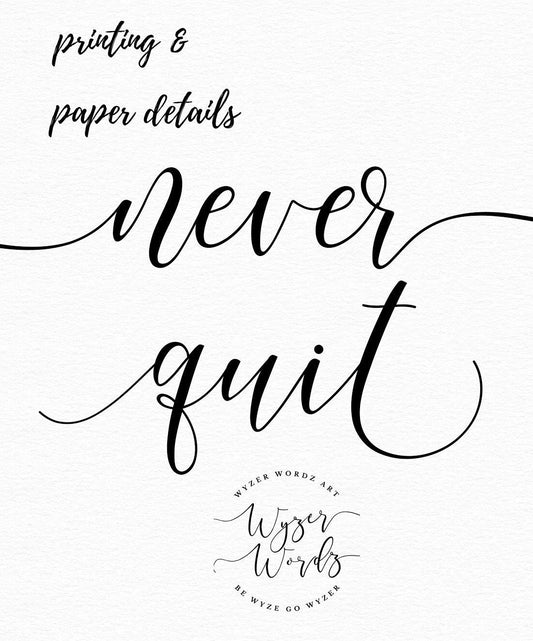 printing &
paper details
never
quit
WYZER WORDZ ART
Wyzer
Wordz
BE WYZE GO WYZER